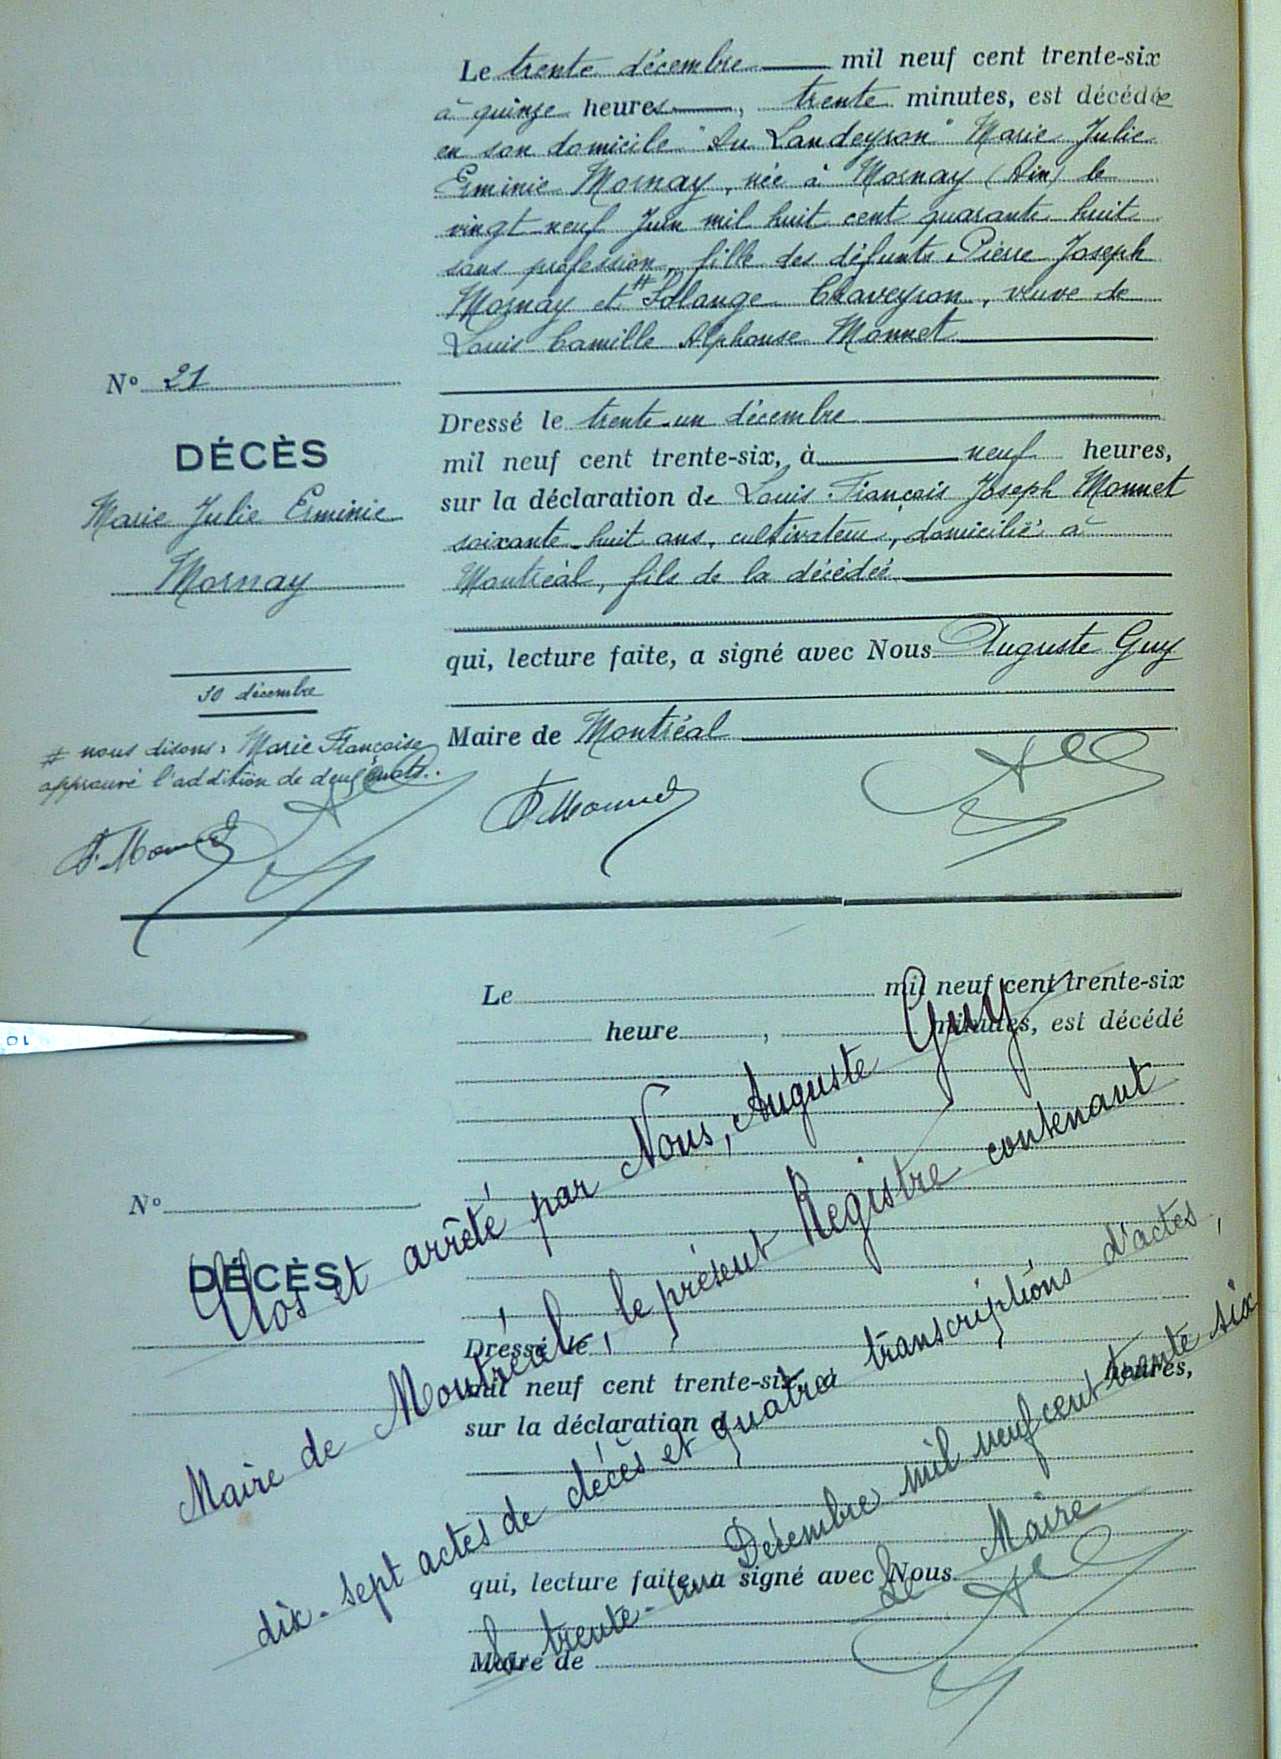 Le trente décembre mil neuf cent trente-six
à quinze heures, trente minutes, est décédée
en son domicile "Au Landeyron" Marie Julie
Erminie Mornay, née à Mornay (Ain) le
vingt neuf Juin mil huit cent quarante huit
sans profession, fille des défunts Pierre Joseph
Mornay et # Solange Chaveyron, veuve de
Louis Camille Alphonse Monnet
N° 21
DÉCÈS
Marie Julie Erminie
Mornay
30 décembre
# nous disons: Marie Françoise
approuvé l'addition de deux mots.
F. Monnet
Dressé le trente-un décembre
mil neuf cent trente-six, à neuf heures,
sur la déclaration de Louis François Joseph Monnet
soixante-huit ans, cultivateur, domicilié à
Montréal, fils de la décédée
qui, lecture faite, a signé avec Nous Auguste Guy
Maire de Montréal
F. Monnet
Le mil neuf cent trente-six
heure , minutes, est décédé
N°
DÉCÈS
Dressé le
mil neuf cent trente-six, à heures,
sur la déclaration d
qui, lecture faite, a signé avec Nous
Maire de
Clos et arrêté par Nous, Auguste Guy
Maire de Montréal, le présent Registre contenant
dix-sept actes de décès et quatre transcriptions d'actes,
le trente-un Décembre mil neuf cent trente six
Le Maire